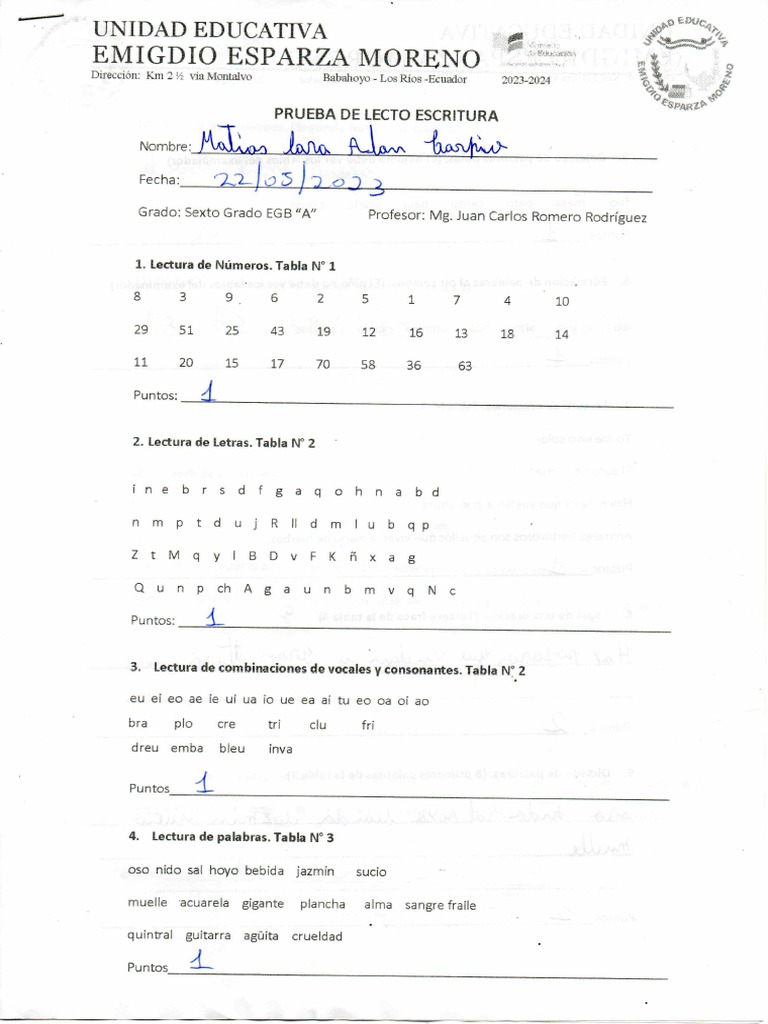 UNIDAD EDUCATIVA
EMIGDIO ESPARZA MORENO
Dirección: Km 2 ½ vía Montalvo Babahoyo - Los Ríos -Ecuador 2023-2024
UNIDAD EDUCATIVA
EMIGDIO ESPARZA MORENO
PRUEBA DE LECTO ESCRITURA
Nombre: Matias Lara Alan
Fecha: 22/05/2023
Grado: Sexto Grado EGB "A" Profesor: Mg. Juan Carlos Romero Rodríguez
1. Lectura de Números. Tabla N° 1
8 3 9 6 2 5 1 7 4 10
29 51 25 43 19 12 16 13 18 14
11 20 15 17 70 58 36 63
Puntos: 1
2. Lectura de Letras. Tabla N° 2
i n e b r s d f g a q o h n a b d
n m p t d u j R ll d m l u b q p
Z t M q y l B D v F K ñ x a g
Q u n p ch A g a u n b m v q N c
Puntos: 1
3. Lectura de combinaciones de vocales y consonantes. Tabla N° 2
eu ei eo ae ie ui ua io ue ea ai tu eo oa oi ao
bra plo cre tri clu fri
dreu emba bleu inva
Puntos 1
4. Lectura de palabras. Tabla N° 3
oso nido sal hoyo bebida jazmín sucio
muelle acuarela gigante plancha alma sangre fraile
quintral guitarra agüita crueldad
Puntos 1